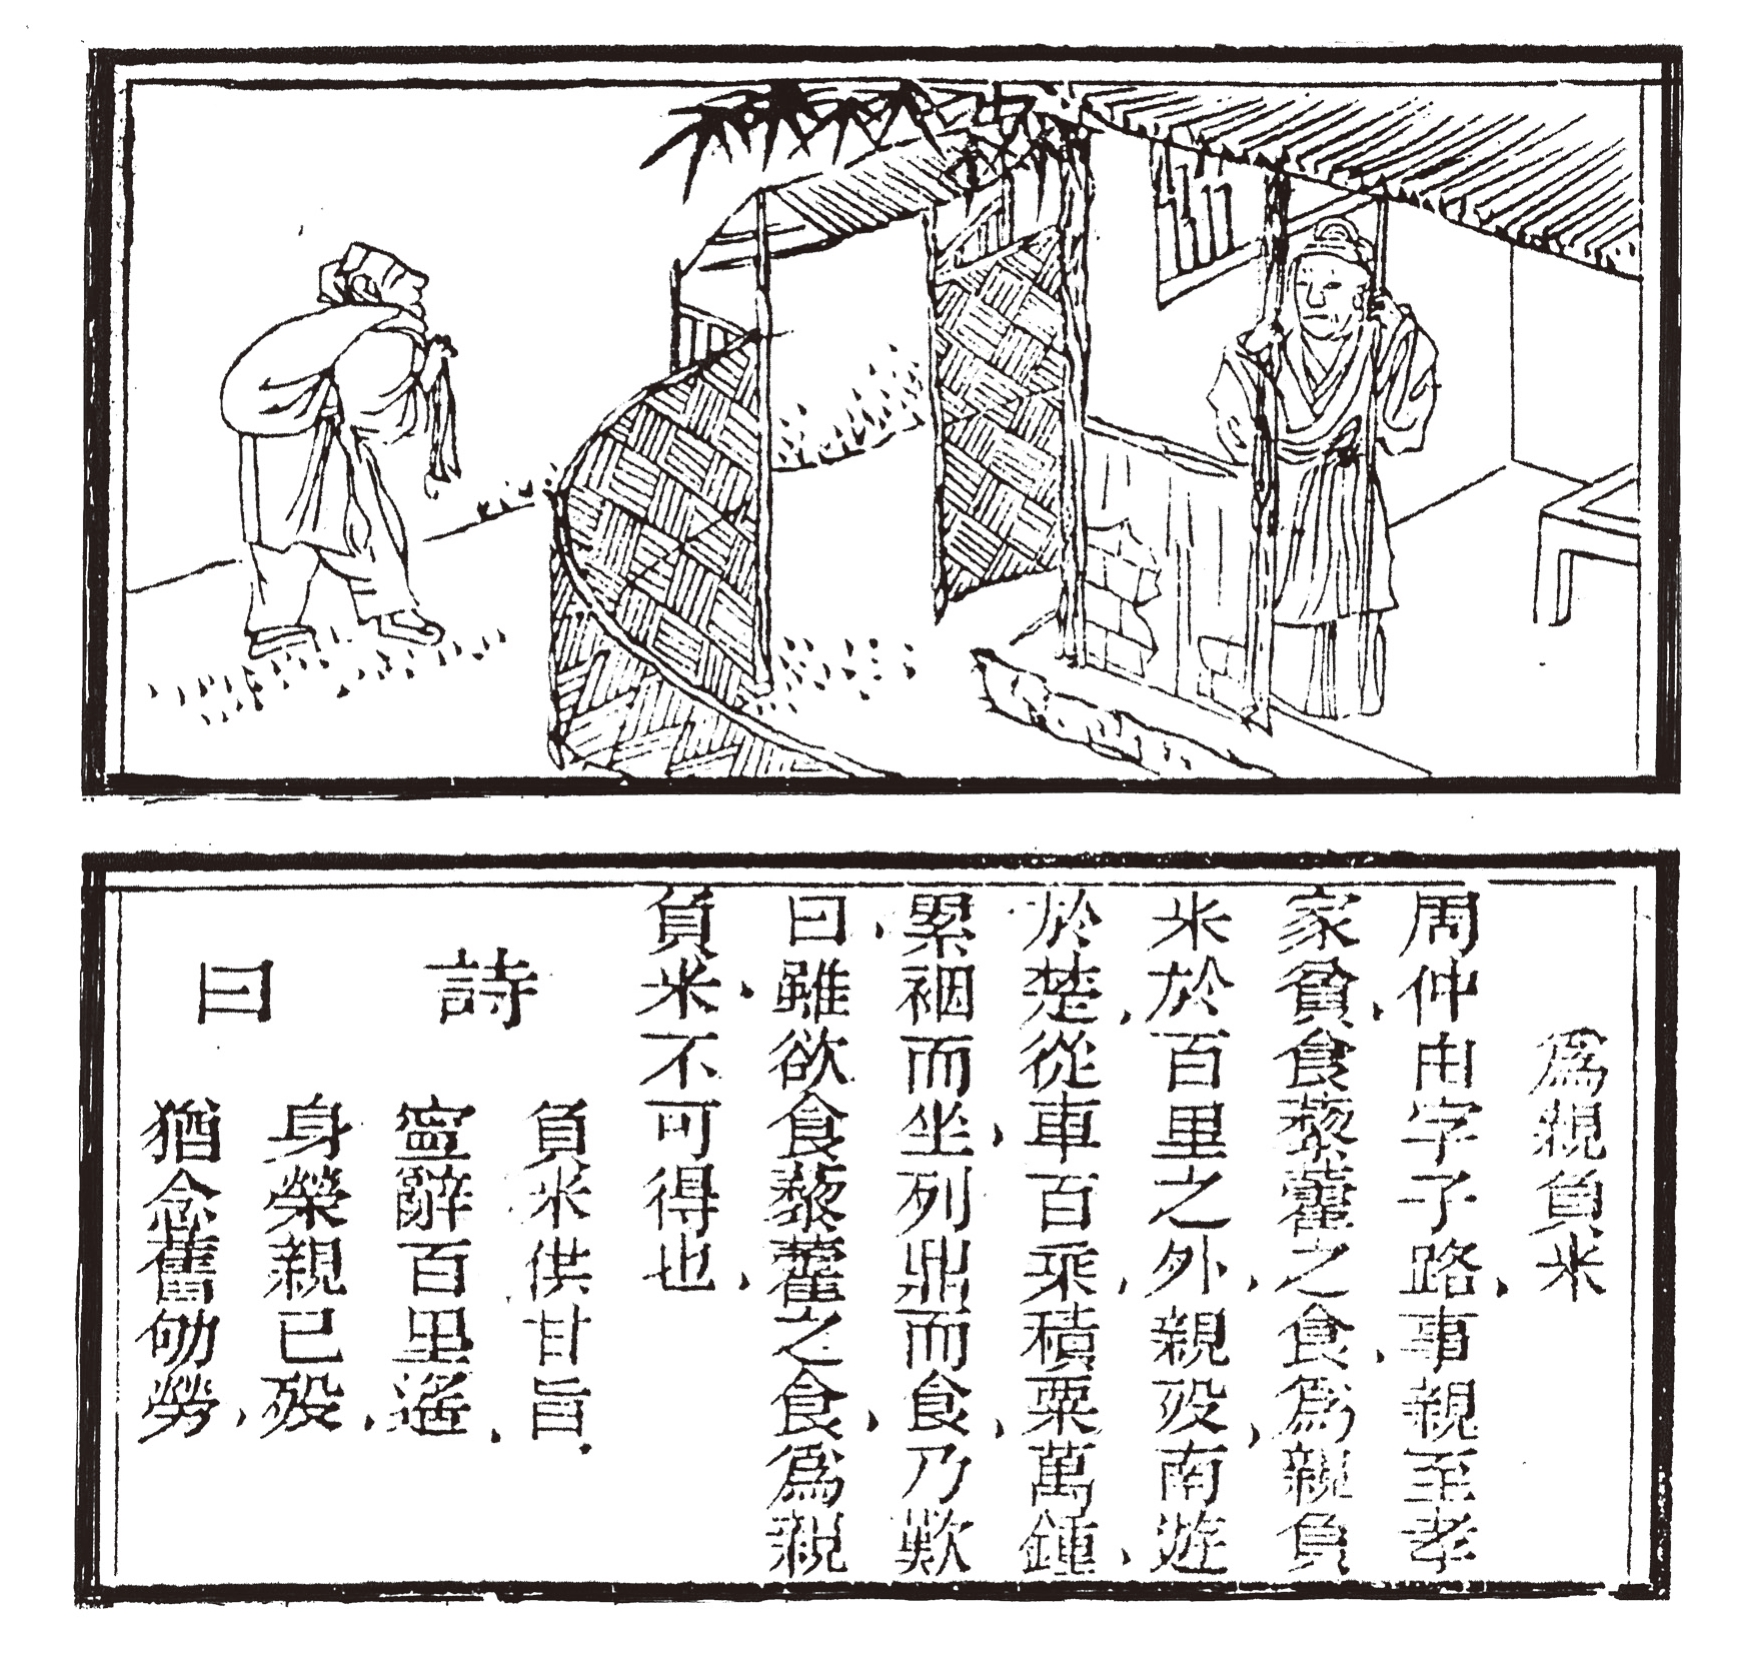 爲親負米
周仲由字子路、事親至孝
家貧、食藜藿之食、爲親負
米於百里之外、親歿、南遊
於楚、從車百乘、積粟萬鍾、
累裀而坐、列鼎而食、乃歎
曰、雖欲食藜藿之食、爲親
負米、不可得也、
詩曰
負米供甘旨、
寧辭百里遙、
身榮親已歿、
猶念舊劬勞、